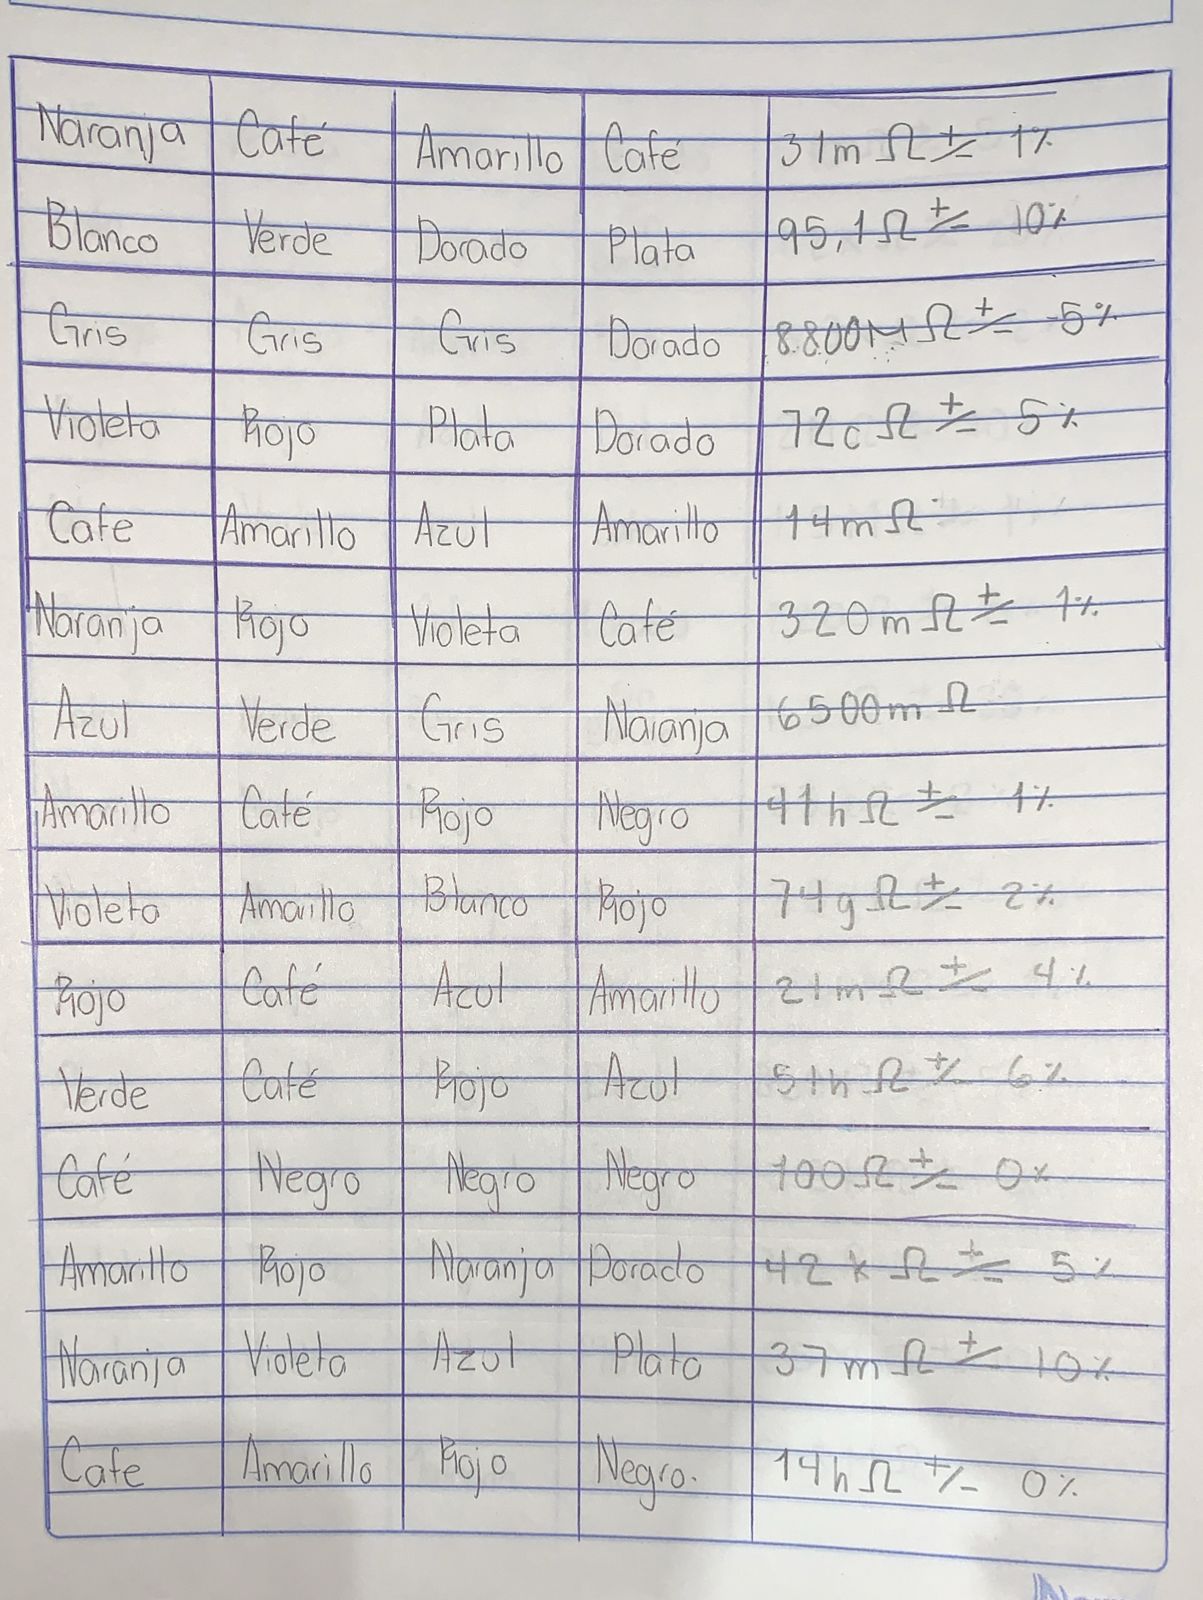 Naranja Café Amarillo Café 31m Ω +/- 1%
Blanco Verde Dorado Plata 95,1Ω +/= 10%
Gris Gris Gris Dorado 8800M Ω +/= 5%
Violeta Rojo Plata Dorado 72c Ω +/= 5%
Cafe Amarillo Azul Amarillo 14m Ω
Naranja Rojo Violeta Café 320m Ω +/= 1%
Azul Verde Gris Naranja 6500m Ω
Amarillo Café Rojo Negro 41h Ω +/- 1%
Violeta Amarillo Blanco Rojo 74g Ω +/- 2%
Rojo Café Azul Amarillo 21m Ω +/- 4%
Verde Café Rojo Azul 51h Ω +/- 6%
Café Negro Negro Negro 100Ω +/- 0%
Amarillo Rojo Naranja Dorado 42k Ω +/= 5%
Naranja Violeta Azul Plata 37m Ω +/- 10%
Cafe Amarillo Rojo Negro. 14h Ω +/- 0%